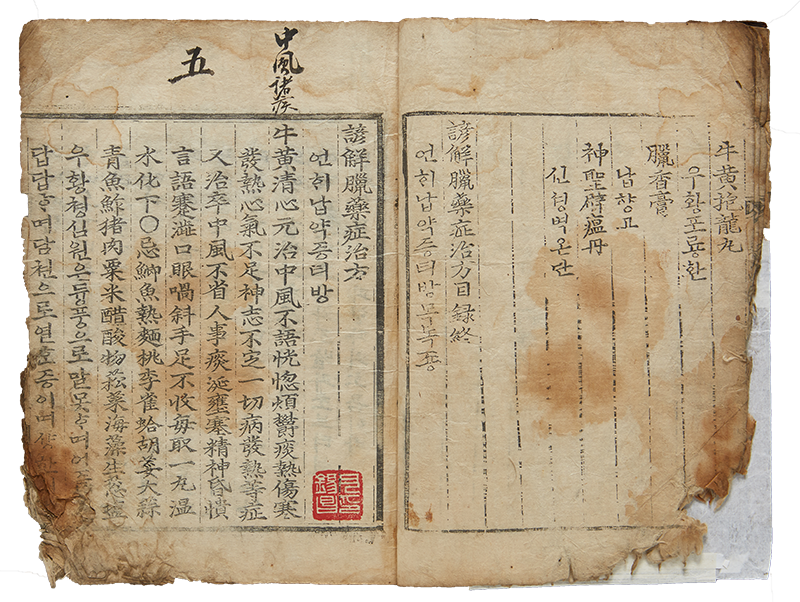 牛黃抱龍丸
우황포룡환
臘香膏
납향고
神聖辟瘟丹
신셩벽온단
諺解臘藥症治方目録終
언ᄒᆡ납약증티방목녹죵
中風諸疾
五
諺解臘藥症治方
언ᄒᆡ납약증티방
牛黃清心元治中風不語恍惚煩鬱痰熱傷寒
發熱心氣不足神志不定一切病發熱等症
又治卒中風不省人事痰涎壅塞精神昏憒
言語蹇澁口眼喎斜手足不收每取一丸温
水化下○忌鯽魚熱麵桃李雀蛤胡荽大蒜
青魚鮓猪肉粟米醋酸物菘菜海藻生葱鹽
우황쳥심원은듕풍으로말못ᄒᆞ며어
답답ᄒᆞ며담쳔으로연호증이며샹